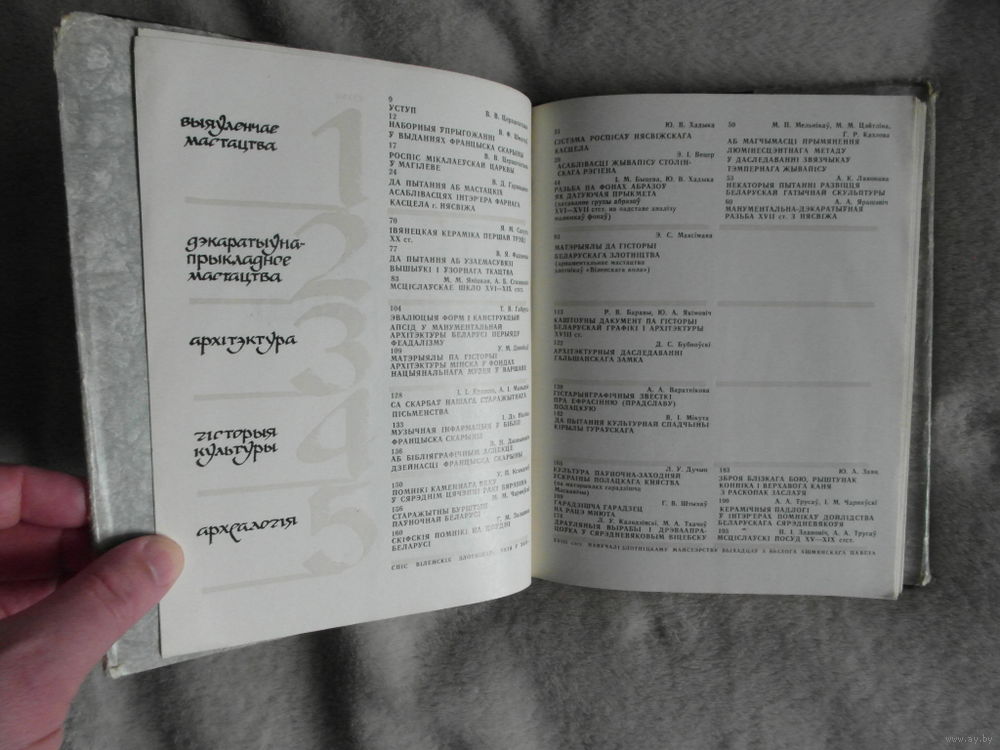 выяўленчае
мастацтва
1
9
УСТУП
12
В. Ф. Шматаў
НАБОРНЫЯ ЎПРЫГОЖАННІ
У ВЫДАННЯХ ФРАНЦЫСКА СКАРЫНЫ
17
РОСПІС МІКАЛАЕЎСКАЙ ЦАРКВЫ
У МАГІЛЕВЕ
24
ДА ПЫТАННЯ АБ МАСТАЦКІХ
АСАБЛІВАСЦЯХ ІНТЭР'ЕРА ФАРНАГА
КАСЦЕЛА г. НЯСВІЖА
дэкаратыўна-
прыкладное
мастацтва
2
70
Я. М. Сахута
ІВЯНЕЦКАЯ КЕРАМІКА ПЕРШАЙ ТРЭЦІ
XX ст.
77
ДА ПЫТАННЯ АБ УЗАЕМАСУВЯЗІ
ВЫШЫЎКІ І ЎЗОРНАГА ТКАЦТВА
83
М. М. Яніцкая, А. Б.
МСЦІСЛАЎСКАЕ ШКЛО XVI—XIX стст.
архітэктура
3
104
ЭВАЛЮЦЫЯ ФОРМ І КАНСТРУКЦЫЙ
АПСІД У МАНУМЕНТАЛЬНАЙ
АРХІТЭКТУРЫ БЕЛАРУСІ ПЕРЫЯДУ
ФЕАДАЛІЗМУ
109
МАТЭРЫЯЛЫ ПА ГІСТОРЫІ
АРХІТЭКТУРЫ МІНСКА Ў ФОНДАХ
НАЦЫЯНАЛЬНАГА МУЗЕЯ Ў ВАРШАВЕ
гісторыя
культуры
4
128
СА СКАРБАЎ НАШАГА СТАРАЖЫТНАГА
ПІСЬМЕНСТВА
133
МУЗЫЧНАЯ ІНФАРМАЦЫЯ Ў БІБЛІІ
ФРАНЦЫСКА СКАРЫНЫ
136
АБ БІБЛІЯГРАФІЧНЫМ АСПЕКЦЕ
ДЗЕЙНАСЦІ ФРАНЦЫСКА СКАРЫНЫ
археалогія
5
150
ПОМНІКІ КАМЕННАГА ВЕКУ
У СЯРЭДНІМ ЦЯЧЭННІ РАКІ БЯРЭЗІНА
156
М. М. Чарняўскі
СТАРАЖЫТНЫ БУРШТЫН
ПАЎНОЧНАЙ БЕЛАРУСІ
160
СКІФСКІЯ ПОМНІКІ НА ПОЎДНІ
БЕЛАРУСІ
Ю. В. Хадыка
СІСТЭМА РОСПІСАЎ НЯСВІЖСКАГА
КАСЦЕЛА
Э. І. Вецер
АСАБЛІВАСЦІ ЖЫВАПІСУ СТОЛІН-
СКАГА РЭГІЁНА
44
І. М. Быцева, Ю. В. Хадыка
РАЗЬБА ПА ФОНАХ АБРАЗОЎ
ЯК ДАТУЮЧАЯ ПРЫКМЕТА
(датаванне групы абразоў
XVI—XVII стст. на падставе аналізу
малюнкаў фонаў)
50
М. П. Мельнікаў, М. М. Цэйтліна,
Г. Р. Кахлова
АБ МАГЧЫМАСЦІ ПРЫМЯНЕННЯ
ЛЮМІНЕСЦЭНТНАГА МЕТАДУ
У ДАСЛЕДАВАННІ ЗВЯЗЧЫКАЎ
ТЭМПЕРНАГА ЖЫВАПІСУ
53
НЕКАТОРЫЯ ПЫТАННІ РАЗВІЦЦЯ
БЕЛАРУСКАЙ ГАТЫЧНАЙ СКУЛЬПТУРЫ
60
А. А. Ярашэвіч
МАНУМЕНТАЛЬНА-ДЭКАРАТЫЎНАЯ
РАЗЬБА XVII ст. З НЯСВІЖА
Э. С. Максімава
МАТЭРЫЯЛЫ ДА ГІСТОРЫІ
БЕЛАРУСКАГА ЗЛОТНІЦТВА
(арнаментальнае мастацтва
злотнікаў «Віленскага кола»)
113
Р. В. Баравы, Ю. А. Якімовіч
КАШТОЎНЫ ДАКУМЕНТ ПА ГІСТОРЫІ
БЕЛАРУСКАЙ ГРАФІКІ І АРХІТЭКТУРЫ
XVIII ст.
122
Д. С. Бубноўскі
АРХІТЭКТУРНЫЯ ДАСЛЕДАВАННІ
ГАЛЬШАНСКАГА ЗАМКА
А. А. Варатнікова
ГІСТАРЫЯГРАФІЧНЫЯ ЗВЕСТКІ
ПРА ЕФРАСІННЮ (ПРАДСЛАВУ)
ПОЛАЦКУЮ
142
В. І. Мікута
ДА ПЫТАННЯ КУЛЬТУРНАЙ СПАДЧЫНЫ
КІРЫЛЫ ТУРАЎСКАГА
Л. У. Дучыц
КУЛЬТУРА ПАЎНОЧНА-ЗАХОДНЯЙ
УСКРАІНЫ ПОЛАЦКАГА КНЯСТВА
Г. В. Штыхаў
ГАРАДЗІШЧА ГАРАДЗЕЦ
НА РАЦЭ МНЮТА
174
Л. У. Калядзінскі, М. А. Ткачоў
ДРАЎЛЯНЫЯ ВЫРАБЫ І ДРЭВААПРА-
ЦОЎКА Ў СЯРЭДНЕВЯКОВЫМ ВІЦЕБСКУ
183
Ю. А. Заяц
ЗБРОЯ БЛІЗКАГА БОЮ, РЫШТУНАК
КОННІКА І ВЕРХАВАГА КАНЯ
З РАСКОПАК ЗАСЛАЎЯ
190
А. А. Трусаў, І. М. Чарняўскі
КЕРАМІЧНЫЯ ПАДЛОГІ
Ў ІНТЭР'ЕРАХ ПОМНІКАЎ ДОЙЛІДСТВА
БЕЛАРУСКАГА СЯРЭДНЕВЯКОЎЯ
195
І. І. Здановіч, А. А. Трусаў
МСЦІСЛАЎСКІ ПОСУД XV—XIX стст.
www.ay.by